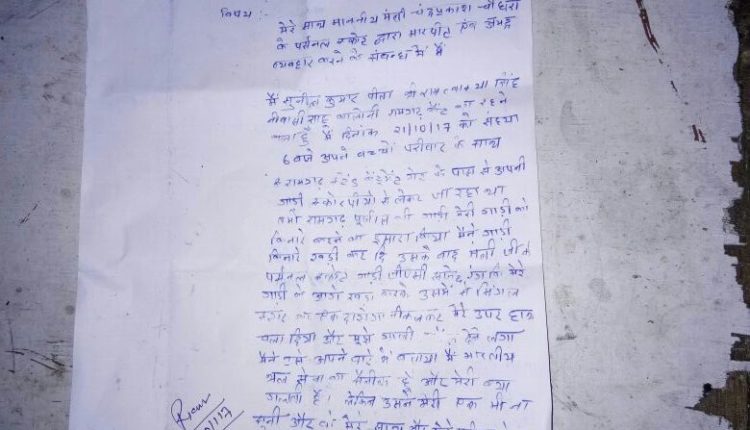 विषय :-
मेरे साथ माननीय मंत्री चंद्रप्रकाश चौधरी
के पर्सनल स्कोर्ट द्वारा मारपीट एवं अभद्र
व्यवहार करने के संबन्ध में
मैं सुनील कुमार पीता श्री सिंह
नीवासी साहू कालोनी रामगढ़ कैंट का रहने
वाला हूँ मैं दिनांक 21/10/17 को संध्या
6 बजे अपने बच्चों परिवार के साथ
रामगढ़ गेट के पास से अपनी
गाड़ी स्कोरपीयो से लेकर जा रहा था
तभी रामगढ़ पुलीस की गाड़ी मेरी गाड़ी को
किनारे करने का इसारा किया मैंने गाड़ी
किनारे खड़ी कर दि उसके बाद मंत्री जी के
पर्सनल स्कोर्ट गाड़ी मेरे
गाड़ी के आगे खड़ा करके उसमें से सिंगल
एक दारोगा नीकलकर मेरे उपर हाथ
चला दिया और मुझे गाली देने लगा
मैंने उसे अपने बारे में बताया मैं भारतीय
थल सेना का सैनीक हूँ और मेरी क्या
गलती है। लेकिन उसने मेरी एक भी ना
सूनी और मेरे साथ और मेरे